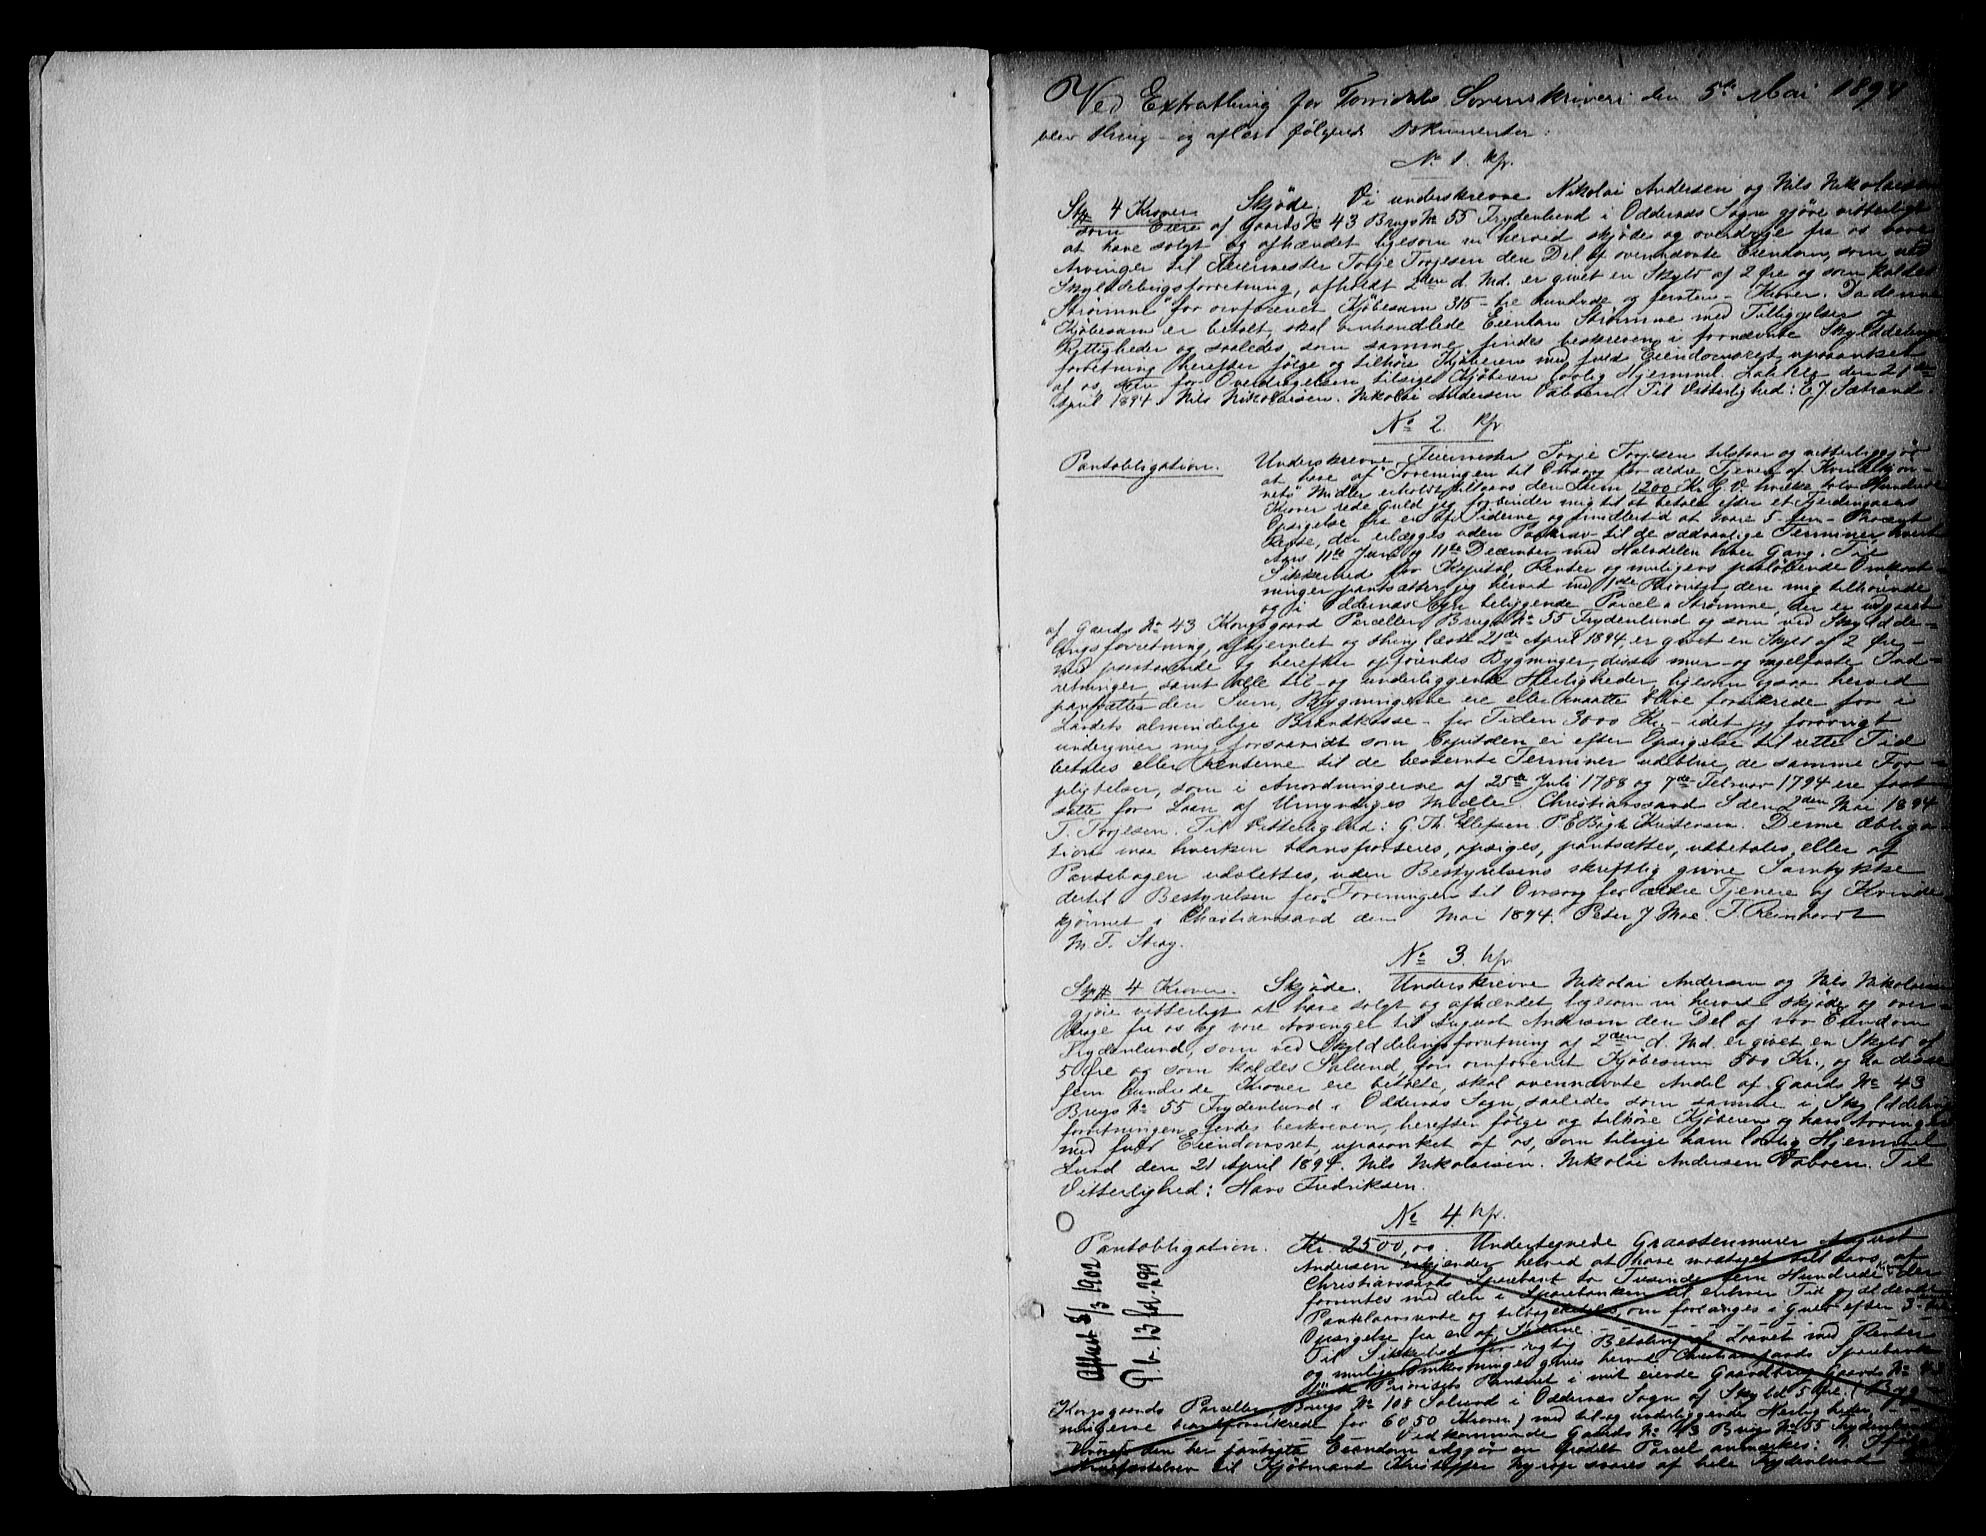 Ved Extrathing for Torridals Sorenskriveri den 5te Mai 1894
blev thing- og aflæst følgende Dokumenter:
No 1. kfr.
Stp# 4 Kroner. Skjøde. Vi underskrevne Nikolai Andersen og Nils Nikolaisen
som Eiere af Gaards No 43 Brugs No 55 Frydenlund i Oddernæs Sogn gjøre vitterligt
at have solgt og afhændet ligesom vi herved skjøde og overdrage fra os vore
Arvinger til Feiermester Torje Torjesen den Del af ovennævnte Eiendom, som ved
Skylddelingsforretning, afholdt 2den d. Md. er givet en Skyld af 2 Øre og som kaldes
"Strømme" for omforenet Kjøbesum 315 - tre hundrede og femten - Kroner. Da denne
Kjøbesum er betalt, skal omhandlede Eiendom Strømme med Tilliggelser og
Rettigheder og saaledes som samme findes beskreven i fornævnte Skylddelings-
forretning herefter følge og tilhøre Kjøberen med fuld Eiendomsret upaaanket
af os, som for Overdragelsen tilsige Kjøberen lovlig Hjemmel. den 21de
April 1894. Nils Nikolaisen. Nikolai Andersen Vaboen. Til Vitterlighed: E. J. Sætrand.
No 2. kfr.
Pantobligation. Underskrevne Feiermester Torje Torjesen tilstaar og vitterliggjør
at have af "Foreningen til Omsorg for ældre Tjenere af Kvindekjøn-
nets" Midler erholdt tillaans den Sum 1200 Kr. G. V. hvilke tolv Hundrede
Kroner rede Guld jeg forbinder mig til at betale efter et Fjerdingaars
Opsigelse fra en af Siderne og imidlertid at svare 5 - fem - Procent
Rente, der erlægges uden Paakrav til de sædvanlige Terminer hvert
Aars 11te Juni og 11te December med Halvdelen hver Gang. Til
Sikkerhed for Kapital, Renter og muligens paaløbende Omkost-
ninger pantsætter jeg herved med 1ste Prioritet den mig tilhørende
og i Oddernæs Sogn beliggende Parcel Strømme, der er udgaaet
af Gaards No 43 Kongsgaard Parceller, Brugs No 55 Frydenlund og som ved Skyldde-
lingsforretning, afhjemlet og thinglæst 21de April 1894, er givet en Skyld af 2 Øre -
med paastaaende og herefter opførendes Bygninger, disses mur- og nagelfaste Ind-
retninger, samt alle til- og underliggende Herligheder, ligesom ogsaa herved
pantsættes den Sum, Bygningerne ere eller maatte blive forsikrede for i
Landets almindelige Brandkasse - for Tiden 3000 Kr. - idet jeg forøvrigt
undergiver mig, forsaavidt som Capitalen ei efter Opsigelse til rette Tid
betales eller Renterne til de bestemte Terminer udeblive, de samme For-
pligtelser, som i Anordningerne af 25de Juli 1788 og 7de Februar 1794 ere fast-
satte for Laan af Umyndiges Midler. Christianssand S den 2den Mai 1894
T. Torjesen. Til Vitterlighed: G. Th. Ellefsen. P. E. Bøgh Kristensen. Denne Obliga-
tion maa hverken transporteres, opsiges, pantsættes, udbetales eller af
Pantebogen udslettes, uden Bestyrelsens skriftlig givne Samtykke
dertil. Bestyrelsen for "Foreningen til Omsorg for ældre Tjenere af Kvinde-
kjønnet" i Christianssand den Mai 1894. Peder J. Moe. T. Reinhardt
M. T. Stray.
No 3. kfr.
Stp# 4 Kroner. Skjøde. Underskrevne Nikolai Andersen og Nils Nikolaisen
gjøre vitterligt at have solgt og afhændet ligesom vi herved skjøde og over-
drage fra os og vore Arvinger til August Andersen den Del af vor Eiendom
Frydenlund, som ved Skylddelingsforretning af 2den d. Md. er givet en Skyld af
5 Øre og som kaldes Solund, for omforenet Kjøbesum 500 Kr., og da disse
fem hundrede Kroner ere betalte, skal ovennævnte Andel af Gaards No 43
Brugs No 55 Frydenlund i Oddernæs Sogn saaledes som samme i Skylddelings-
forretningen findes beskreven, herefter følge og tilhøre Kjøberen og hans Arvinger
med fuld Eiendomsret, upaaanket af os, som tilsige ham lovlig Hjemmel
Lund den 21 April 1894. Nils Nikolaisen. Nikolai Andersen Vaboen. Til
Vitterlighed: Hans Fredriksen.
No 4. kfr.
Pantobligation. Kr. 2500,00. Undertegnede Graastenmurer August
Andersen erkjender herved at have modtaget til Laans af
Christianssands Sparebank to Tusinde fem Hundrede Kr. der
forrentes med den i Sparebanken til enhver Tid gjældende
Pantelaansrente og tilbagebetales, om forlanges i Guld efter 3
Opsigelse fra en af Siderne.
Til Sikkerhed for rigtig Betaling af Laanet med Renter
og mulige Omkostninger gives herved Christianssands Sparebank
1ste Prioritets Panteret i mit eiende Gaardbrug Gaards No 43
Kongsgaards Parceller Brugs No 108 Solund i Oddernæs Sogn af Skyld 5 Øre. (Byg-
ningerne brandforsikrede for 6050 Kroner) med til- og underliggende Herligheder.
Vedkommende Gaards No 43 Brug No 55 Frydenlund
hvoraf den her pantsatte Eiendom udgjør en fradelt Parcel anmærkes:
til Kjøbmand Christopher Nyrop svares af hele Frydenlund
Aflæst 8/3 1902
P. b. 13 fol. 299